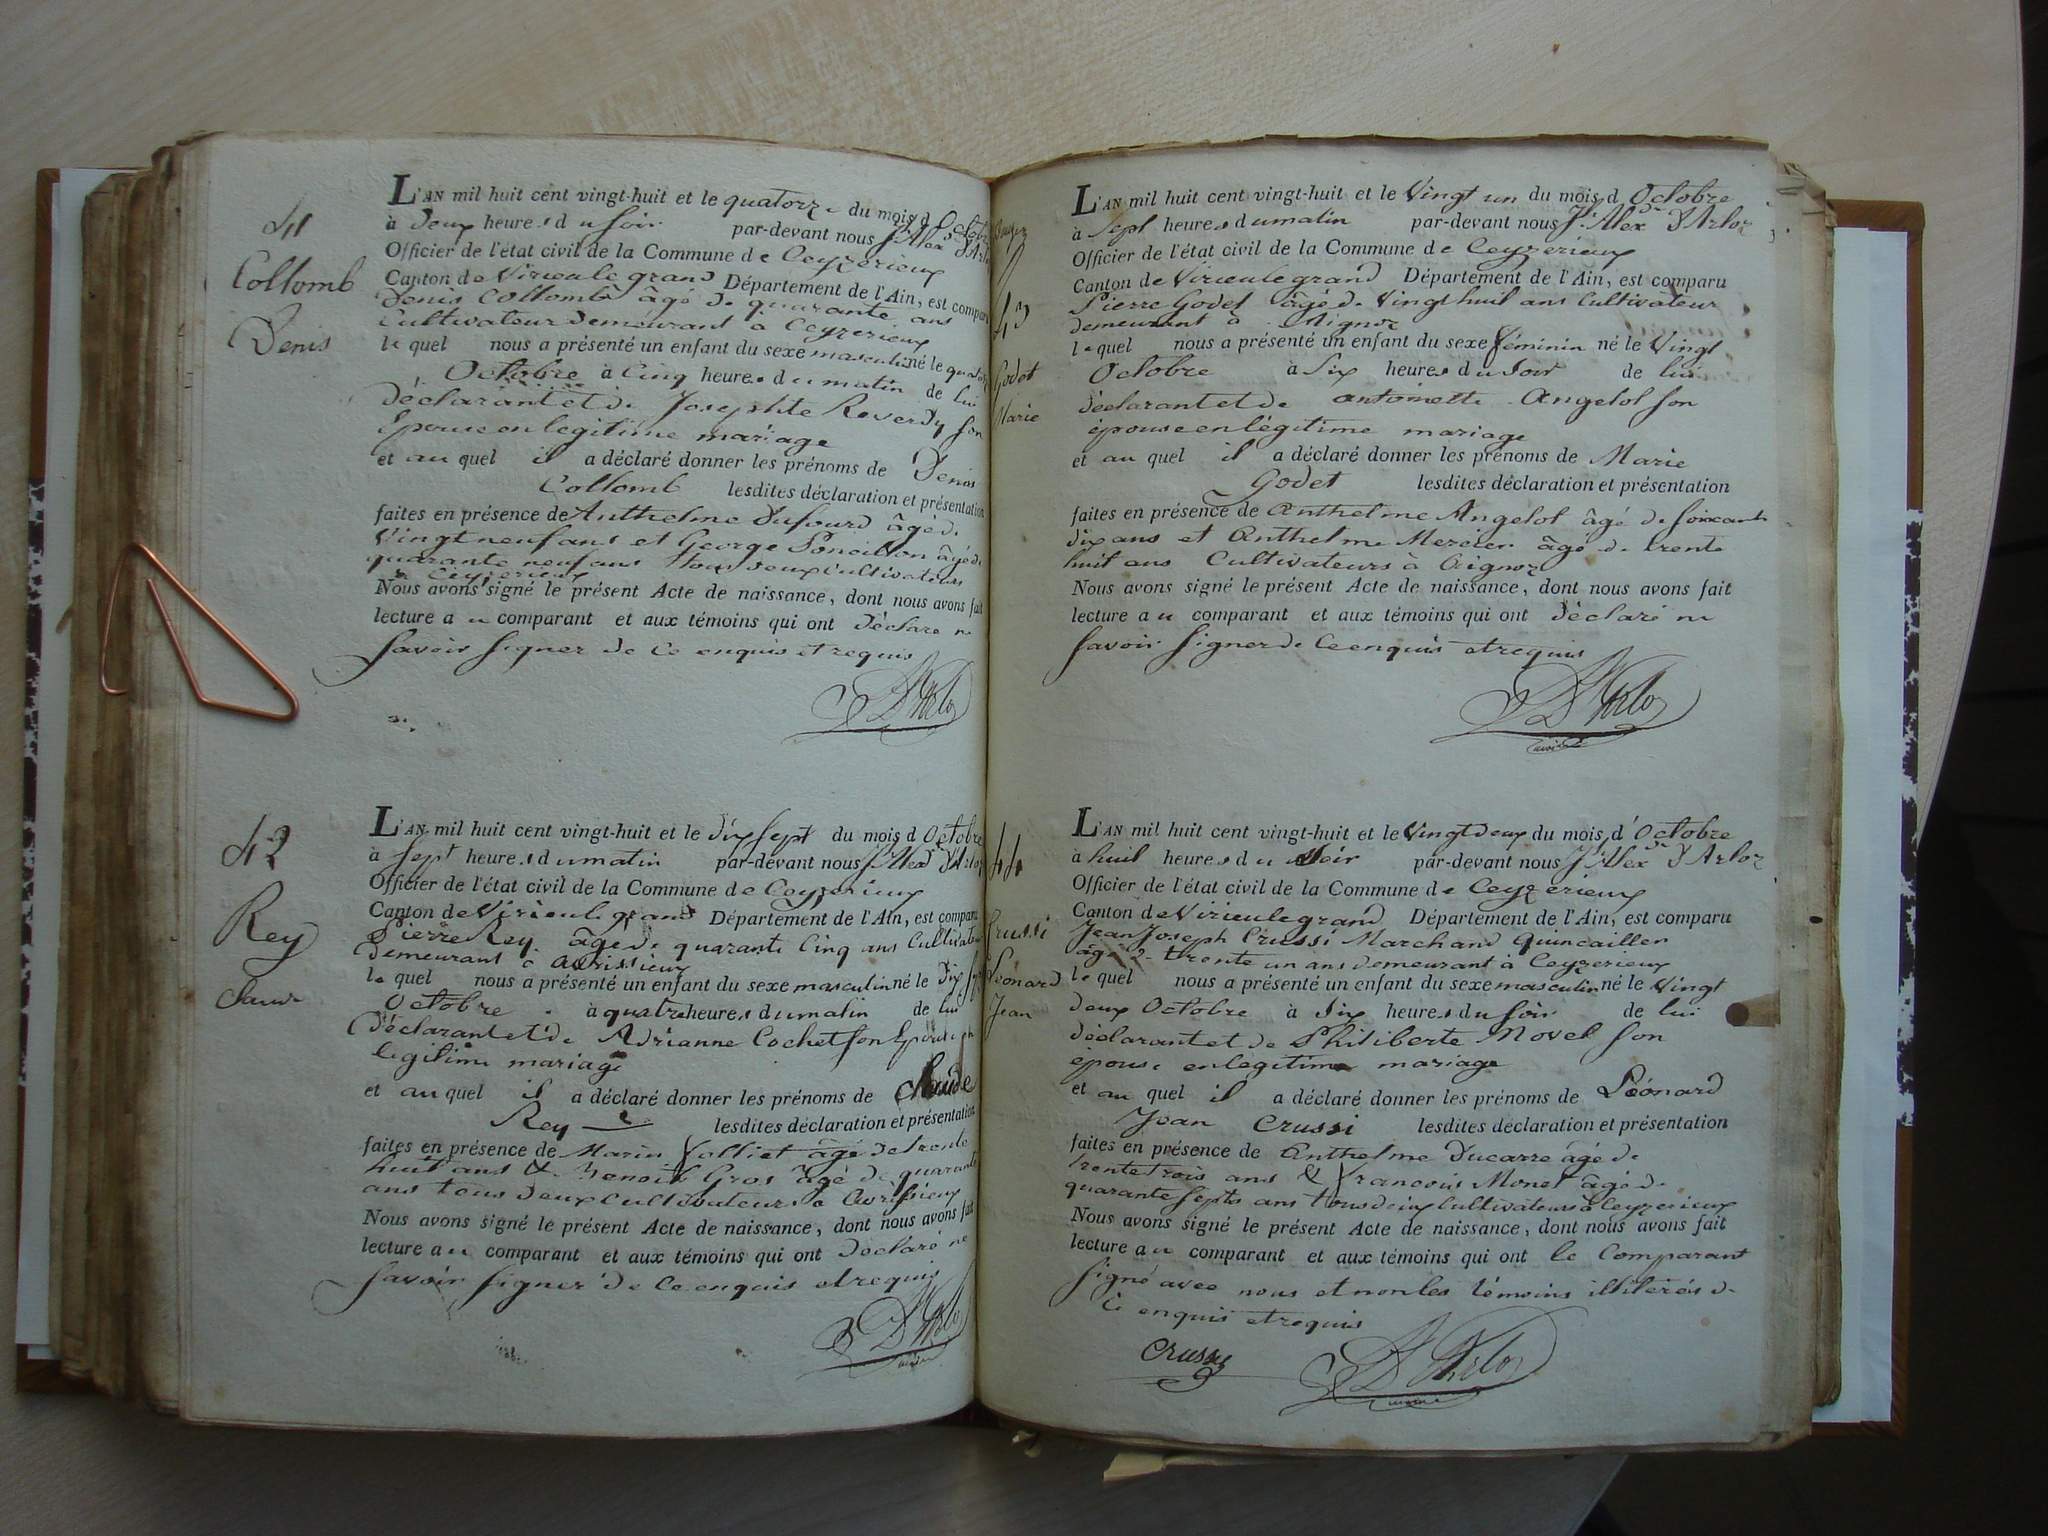 41
Collomb
Denis
L'AN mil huit cent vingt-huit et le quatorze du mois d'Octobre
à Deux heures du soir par-devant nous J. Alex.dre D'Arloz
Officier de l'état civil de la Commune de Ceyzerieux
Canton de Virieulegrand Département de l'Ain, est comparu
Denis Collomb âgé de quarante ans
Cultivateur Demeurant à Ceyzerieux
lequel nous a présenté un enfant du sexe masculin né le quatorze
Octobre à Cinq heures du matin de lui
déclarant et de Josephte Reverdy son
Epouse en legitime mariage
et au quel il a déclaré donner les prénoms de Denis
Collomb lesdites déclaration et présentation
faites en présence de Anthelme Dufourd âgé de
Vingt neuf ans et George Poncillon âgé de
quarante neuf ans tous deux Cultivateurs
à Ceyzerieux
Nous avons signé le présent Acte de naissance, dont nous avons fait
lecture au comparant et aux témoins qui ont Déclaré ne
Savoir Signer de ce enquis et requis
D'Arloz
42
Rey
Claude
L'AN mil huit cent vingt-huit et le Dix Sept du mois d'Octobre
à Sept heures du matin par-devant nous J. Alex.dre D'Arloz
Officier de l'état civil de la Commune de Ceyzerieux
Canton de Virieulegrand Département de l'Ain, est comparu
Pierre Rey âgé de quarante Cinq ans Cultivateur
Demeurant à avrissieux
lequel nous a présenté un enfant du sexe masculin né le Dix Sept
Octobre à quatre heures du matin de lui
Déclarant et de Adrianne Cochet son Epouse en
legitime mariage
et au quel il a déclaré donner les prénoms de Claude
Rey lesdites déclaration et présentation
faites en présence de Marin Valliet âgé de trente
huit ans & Benoit Gros âgé de quarante
ans tous Deux Cultivateurs à avrissieux
Nous avons signé le présent Acte de naissance, dont nous avons fait
lecture au comparant et aux témoins qui ont Déclaré ne
Savoir Signer de ce enquis et requis
D'Arloz
maire
43
Godet
Marie
L'AN mil huit cent vingt-huit et le Vingt un du mois d'Octobre
à Sept heures du matin par-devant nous J. Alex.dre D'Arloz
Officier de l'état civil de la Commune de Ceyzerieux
Canton de Virieulegrand Département de l'Ain, est comparu
Pierre Godet âgé de Vingt huit ans Cultivateur
demeurant à Aignoz
lequel nous a présenté un enfant du sexe féminin né le Vingt
Octobre à Six heures du Soir de lui
déclarant et de antoinette Angelot son
épouse en légitime mariage
et au quel il a déclaré donner les prénoms de Marie
Godet lesdites déclaration et présentation
faites en présence de Anthelme Angelot âgé de Soixante
dix ans et Anthelme Mercier âgé de trente
huit ans Cultivateurs à Aignoz
Nous avons signé le présent Acte de naissance, dont nous avons fait
lecture au comparant et aux témoins qui ont Déclaré ne
Savoir Signer de ce enquis et requis
D'Arloz
maire
44
Crussi
Léonard
Jean
L'AN mil huit cent vingt-huit et le Vingt Deux du mois d'Octobre
à huit heures du Soir par-devant nous J. Alex.dre D'Arloz
Officier de l'état civil de la Commune de Ceyzerieux
Canton de Virieulegrand Département de l'Ain, est comparu
Jean Joseph Crussi Marchand quincailler
âgé de trente un ans demeurant à Ceyzerieux
lequel nous a présenté un enfant du sexe masculin né le Vingt
deux Octobre à Six heures du soir de lui
déclarant et de Philiberte Movel son
épouse en légitime mariage
et au quel il a déclaré donner les prénoms de Léonard
Jean Crussi lesdites déclaration et présentation
faites en présence de Anthelme Ducarre âgé de
trente trois ans & Francois Monet âgé de
quarante Septs ans tous deux Cultivateurs à Ceyzerieux
Nous avons signé le présent Acte de naissance, dont nous avons fait
lecture au comparant et aux témoins qui ont le Comparant
signé avec nous et non les témoins illiterés de
ce enquis et requis
Crussy D'Arloz
maire